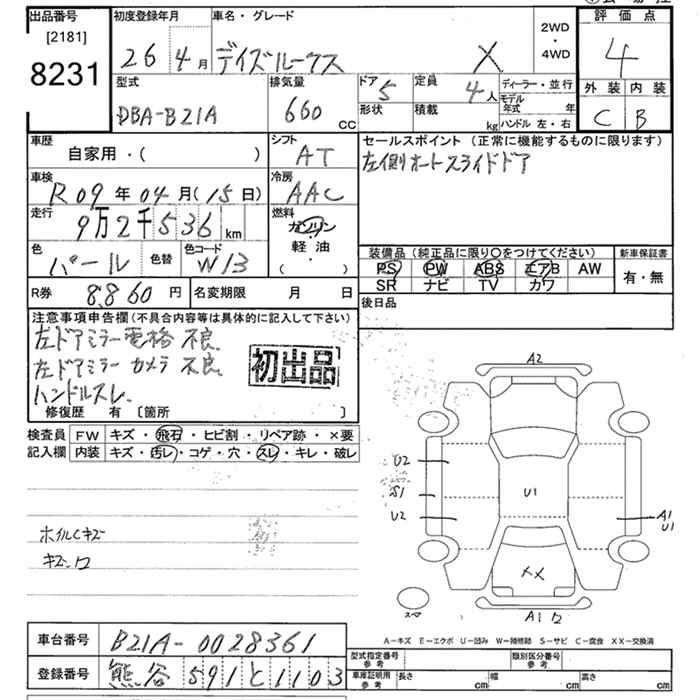 出品番号
[2181]
8231
初度登録年月
26 4月
車名・グレード
デイズルークス X
2WD
・
4WD
評価点
4
外装 内装
C B
型式
DBA-B21A
排気量
660 cc
ドア 5
形状
定員 4人
積載 kg
ディーラー・並行
モデル年式 年
ハンドル 左・右
車歴
自家用・( )
シフト
AT
セールスポイント(正常に機能するものに限ります)
左側オートスライドドア
車検
R09年04月(15日)
冷房
AAC
走行
9万2千536km
燃料
ガソリン
軽油
・
( )
色
パール
色替
色コード
W13
装備品(純正品に限り○をつけてください)
PS PW ABS エアB AW
SR ナビ TV カワ
新車保証書
有・無
R券
8,860円
名変期限 月 日
後日品
注意事項申告欄(不具合内容等は具体的に記入して下さい)
左ドアミラー電格不良.
左ドアミラーカメラ不良.
ハンドルスレ.
初出品
修復歴 有 [箇所 ]
検査員
記入欄
FW キズ・飛石・ヒビ割・リペア跡・×要
内装 キズ・汚レ・コゲ・穴・スレ・キレ・破レ
ホイルCキズ
キズ・ワ
A2
U2
S1
U2
U1
A1
U1
XX
A1ワ
スマ
A-キズ E-エクボ U-凹み W-補修跡 S-サビ C-腐食 XX-交換済
車台番号
B21A-0028361
登録番号
熊谷 591 と 1103
型式指定番号
参考
類別区分番号
参考
車庫証明用
参考
長さ cm
幅 cm
高さ cm